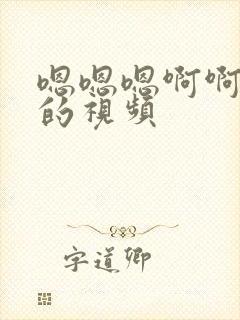 嗯嗯嗯啊啊
的視頻
字道卿